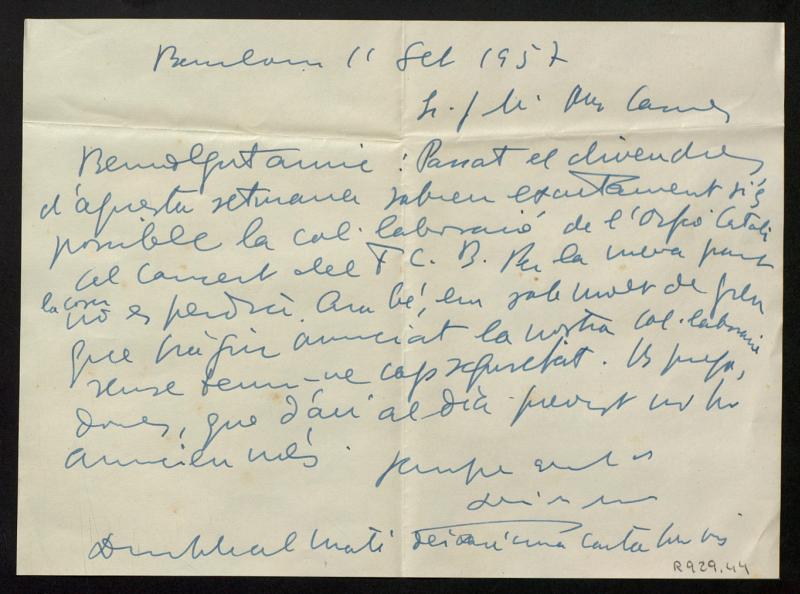 Barcelona 11 Set 1957
Sr. J. Mª
Benvolgut amic: Passat el divendres
d'aquesta setmana sabrem exactament si és
possible la col·laboració de l'Orfeó Català
al concert del F. C. B. Per la meva part
la cosa
no es perdrà. Ara bé, em sap molt de greu
que hàgiu anunciat la nostra col·laboració
sense tenir-ne cap seguretat. Us prego,
doncs, que d'ací al dia previst no ho
anuncieu més.
Sempre
al matí deixaré una carta
R929.44